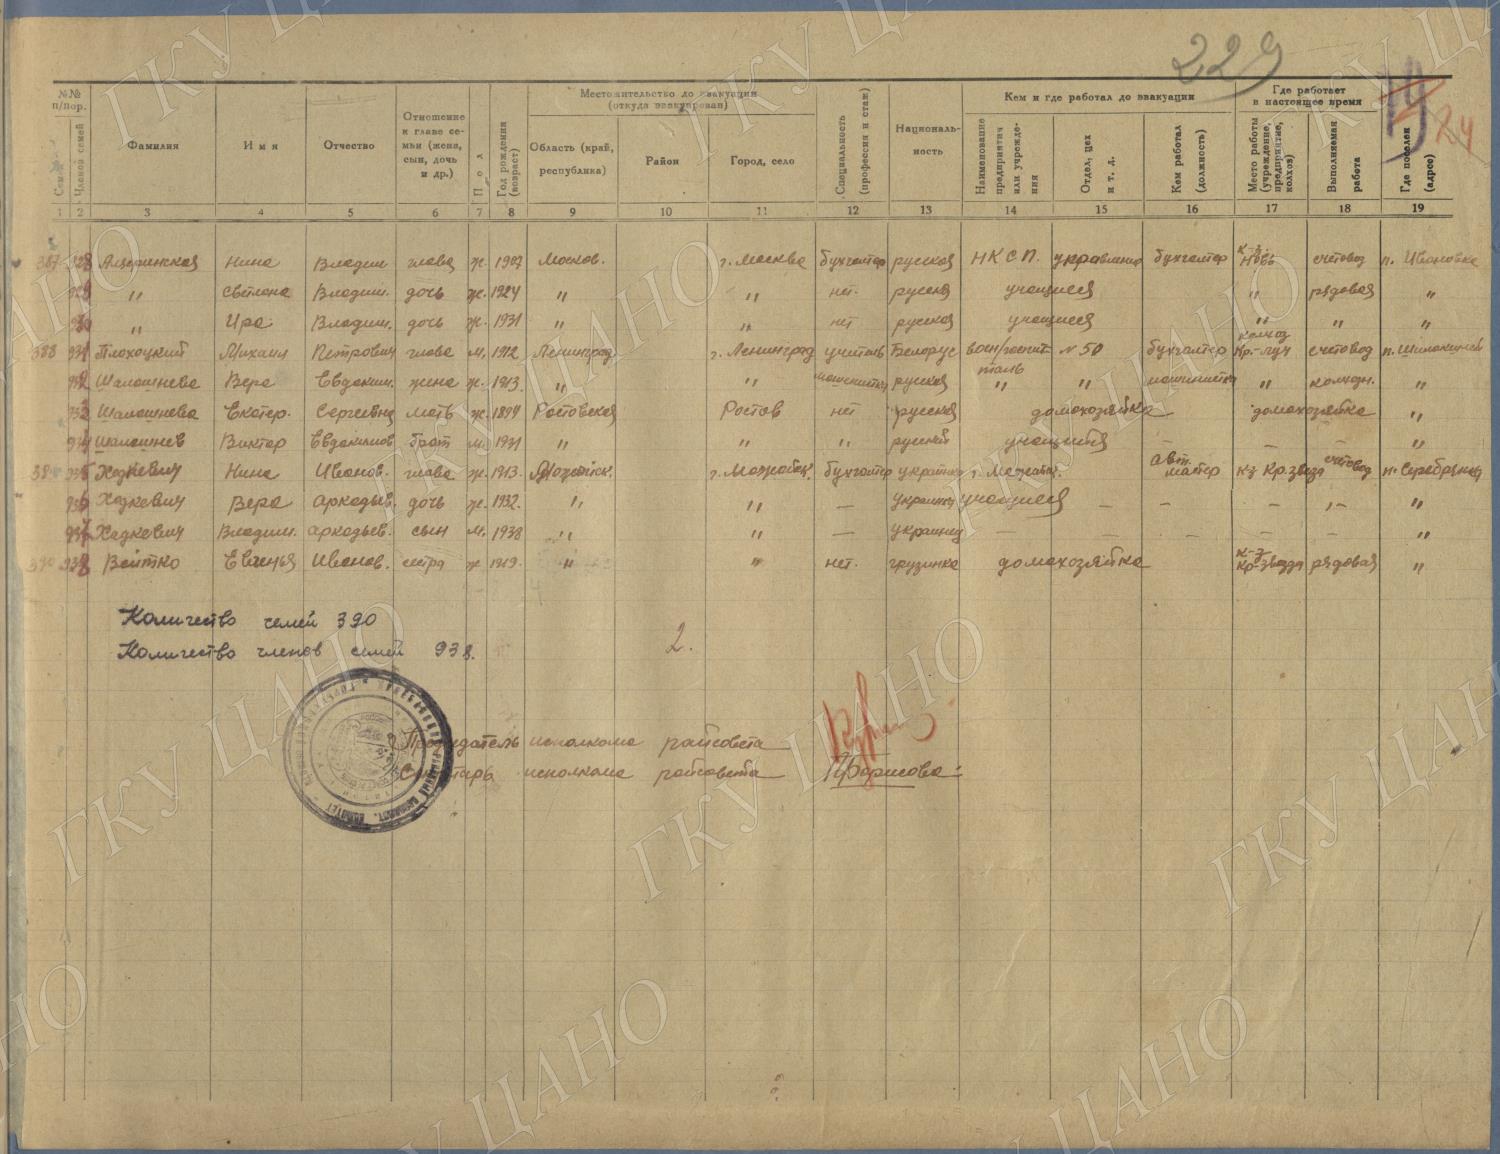 229
19
24
№№ п/пор. Местожительство до эвакуации (откуда эвакуирован) Кем и где работал до эвакуации Где работает в настоящее время
Семей Членов семей Фамилия Имя Отчество Отношение к главе семьи (жена, сын, дочь и др.) Пол Год рождения (возраст) Область (край, республика) Район Город, село Специальность (профессия и стаж) Националь-ность Наименование предприятия или учрежде-ния Отдел, цех и т. д. Кем работал (должность) Место работы (учреждение, предприятие, колхоз) Выполняемая работа Где поселен (адрес)
1 2 3 4 5 6 7 8 9 10 11 12 13 14 15 16 17 18 19
387 928 Нина Владим глава ж. 1907 Москов. г. Москва бухгалтер русская НКСП. управление бухгалтер к-з Новь счетовод п. Ивановка
929 " Светлана Владим. дочь ж. 1924 " " нет. русская учащиеся " рядовая "
930 " Ира Владим. дочь ж. 1931 " " нет русская учащиеся " " "
388 931 Плохоцкий Михаил Петрович глава м. 1912 Ленинград г. Ленинград учитель Белорус воен/госпиталь №50 бухгалтер колхоз Кр.-луч счетовод
932 Шалашнева Вера Евдоким. жена ж. 1913. " " машинистка русская " " машинистка " колхозн. "
933 Шалашнева Екатер. Сергеевна мать ж. 1894 Ростовская Ростов нет русская домохозяйка домохозяйка "
934 Шалашнев Виктор Евдокимов брат м. 1931 " " " русский учащийся – – – "
389 935 Ходкевич Нина Иванов. глава ж. 1913. г. Можайск. бухгалтер г. Можайск. кз Кр.звезда счетовод
936 Ходкевич Вера Аркадьев. дочь ж. 1932. " " – учащиеся – – – "
937 Ходкевич Владим. Аркадьев. сын м. 1938 " " – украинец – – – – – "
390 938 Войтко Иванов. сестра ж 1919. " " нет. грузинка домохозяйка к-з Кр-звезда рядовая "
Количество семей 390
Количество членов семей 938.
2.
Председатель исполкома райсовета
Секретарь исполкома райсовета Борисова
ГКУ ЦАНО